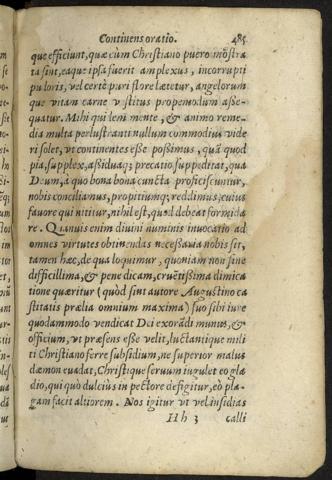 Continens oratio. 485
que efficiunt, quæ cùm Christiano puero mõstra
ta sint, eaque ipsa fuerit amplexus, incorrupti
pu loris, vel certè puri flore lætetur, angelorum
que vitam carne vestitus propemodum asse-
quatur. Mihi qui leni mente, & animo reme-
dia multa perlustranti nullum commodius vide
ri solet, vt continentes esse possimus, quã quod
pia, supplex, assiduaq; precatio suppeditat, qua
Deum, a quo bona bona cuncta proficiscuntur,
nobis conciliamus, propitiumq; reddimus, cuius
fauore qui nititur, nihil est, quod debeat formida
re. Quanuis enim diuini numinis inuocatio ad
omnes virtutes obtinendas necessaria nobis sit,
tamen hæc, de qua loquimur, quoniam non sine
difficillima, & pene dicam, cruẽtissima dimica
tione quæritur (quòd sint autore Augustino ca
stitatis prælia omnium maxima) suo sibi iure
quodammodo vendicat Dei exorãdi munus, &
officium, vt præsens esse velit, luctantique mili
ti Christiano ferre subsidium, ne superior malus
dæmon euadat, Christique seruum iugulet eo gla
dio, qui quò dulciùs in pectore defigitur, eò pla-
gam facit altiorem. Nos igitur vt vel insidias
H h 3 calli